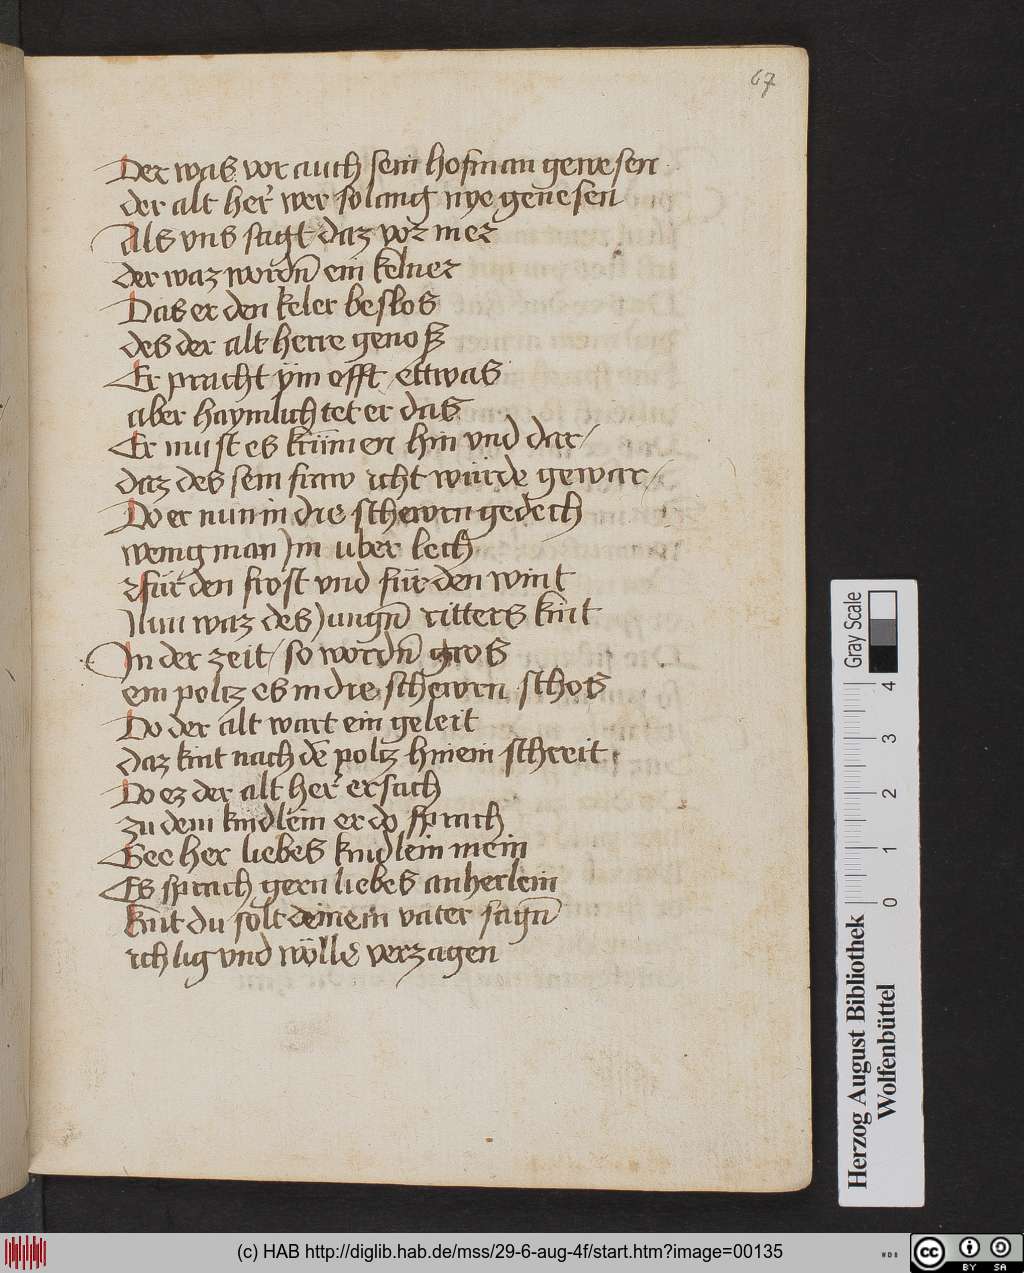 67
Der was vor auch sein hofman gewesen
der alt her̓ wer so lang nye genesen
Als vns sagt daz vor mer
der waz wordn̄ ein kelner
Das er den keler beslos
des der alt herre genoß
Er pracht ÿm offt / ettwas
aber haymlich tet er das
Er must es krümen hin vnd dar /
daz des sein fraw icht würde gewar /
Do er nun in die schewrn gedech
wenig man Jm uber lech
für den frost vnd für den wint
Nun waz des Jungn̄ ritters kint
Jn der zeit / so wordn̄ gros
ein poltz es in die schewrn schos
Do der alt wart ein geleit
daz kint nach dē poltz hinein schreit
Do ez der alt her̓ ersach
zu dem kindlein er do sprach
Gee her liebes kindlein mein
Es sprach gern liebes anherlein
kint du solt deinem vater sagn̄
ich lig vnd wölle verzagen
Gray Scale
0 1 2 3 4
Herzog August Bibliothek
Wolfenbüttel
(c) HAB http://diglib.hab.de/mss/29-6-aug-4f/start.htm?image=00135
WDB
cc
BY SA